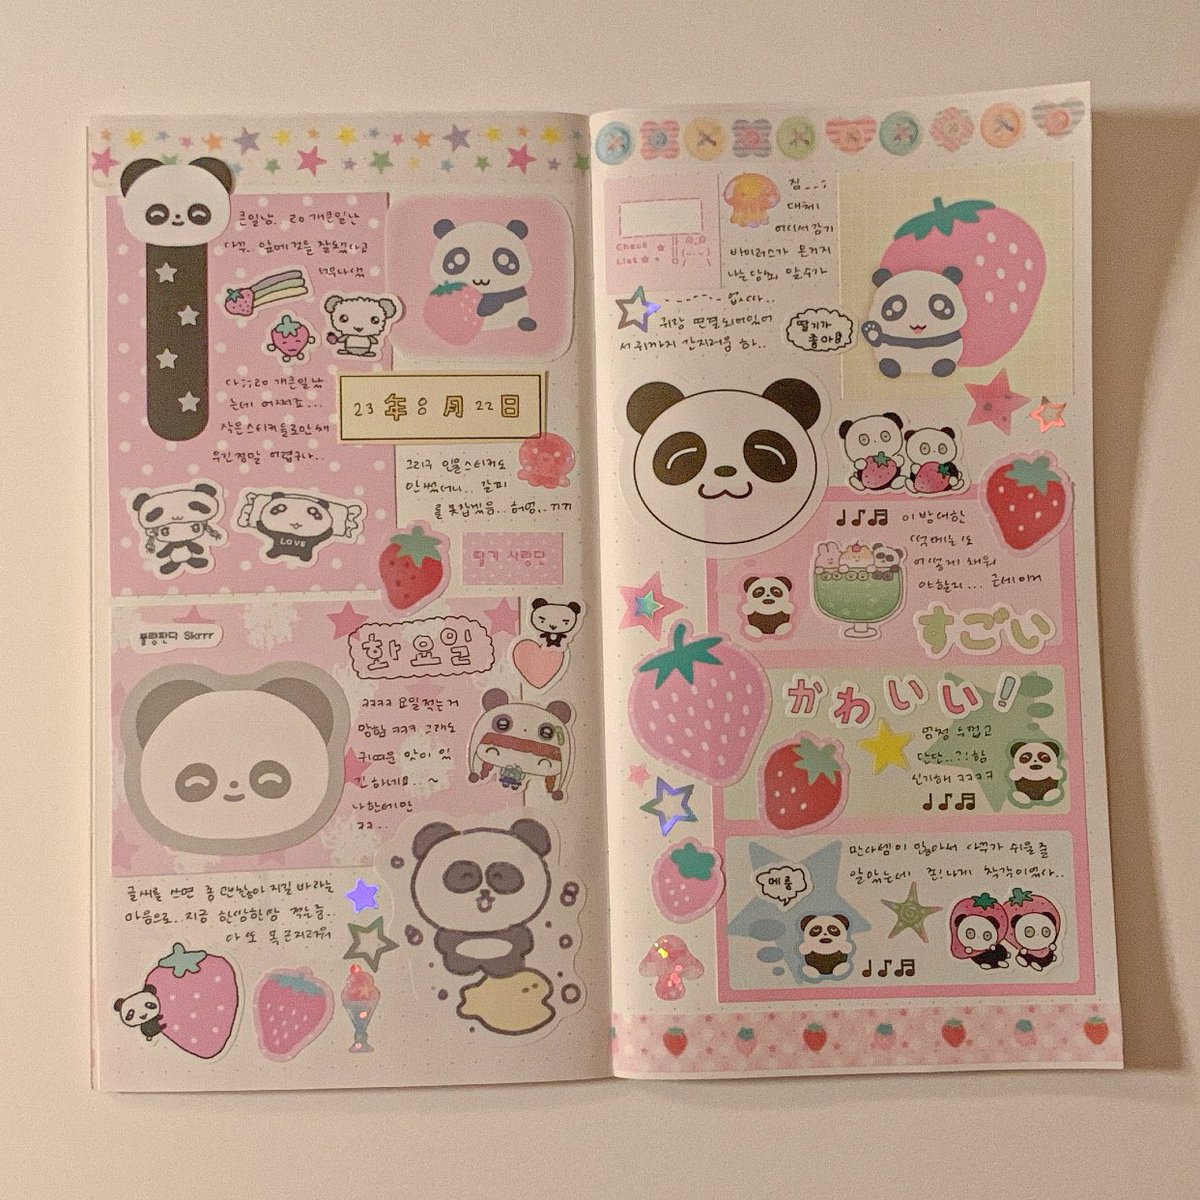 큰일남.. 20 개큰일난
다꾸.. 앞에것들 잘못썼다고
너무나갔
다;;20 개큰일났
는데 어쩌죠...
작은스티커들로만 채
우긴 정말 어렵구나..
23 年 8 月 22 日
그리구 인물스티커도
안썼더니.. 갈피
를 못잡겠음.. 허엉..ㅠㅠ
LOVE
딸기 사랑단
불량판다 Skrrr
화요일
ㅋㅋㅋㅋ 요일 적는거
망함 ㅋㅋㅋ 그래도
귀여운 맛이 있
긴 하네요..~
나한테만
ㅋㅋ...
글씨를 쓰면 좀 괜찮아 지길 바라는
마음으로.. 지금 한땀한땀 적는중..
아 또 목 근지러워
Check
List
짐...;
대체
어디서 감기
바이러스가 온거지
나는 당최 알수가
없다..
귀랑 연결되어있어
서 귀까지 간지러움 하..
딸기가
좋아
이 방대한
떡메는 또
어떻게 채워
야할지...
すごい
かわいい!
엄청 두껍고
단단..함
신기해 ㅋㅋㅋㅋ
메롱
판다템이 많아서 다꾸가 쉬울 줄
알았는데 진!나게 착각이었다..